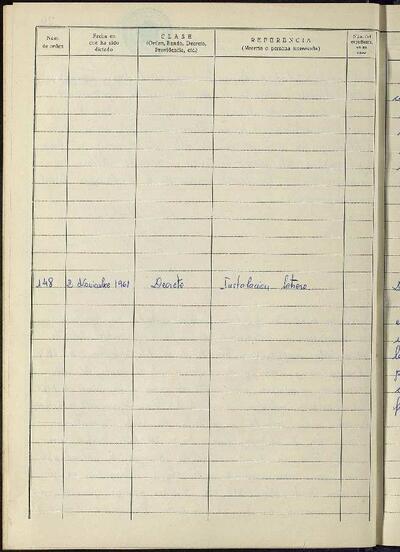 Núm. de orden
Fecha en que ha sido dictado
CLASE
(Orden, Bando, Decreto, Providencia, etc.)
REFERENCIA
(Materia o persona interesada)
148 2 Noviembre 1961 Decreto Instalación letrero.